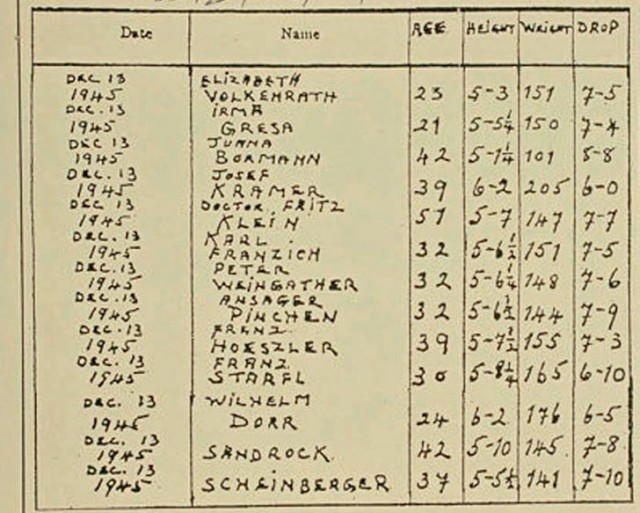 Date Name AGE HEIGHT WEIGHT DROP
DEC 13 ELIZABETH
1945 VOLKENRATH 23 5-3 151 7-5
DEC. 13 IRMA
1945 GRESA 21 5-5¼ 150 7-4
DEC 13 JUANNA
1945 BORMANN 42 5-1¼ 101 8-8
DEC. 13 JOSEF
1945 KRAMER 39 6-2 205 6-0
DEC 13 DOCTOR FRITZ
1945 KLEIN 51 5-7 147 7-7
DEC. 13 KARL
1945 FRANZICH 32 5-6½ 151 7-5
DEC. 13 PETER
1945 WEINGATHER 32 5-6¼ 148 7-6
DEC. 13 ANSAGER
1945 PINCHEN 32 5-6½ 144 7-9
DEC. 13 FRANZ
1945 HOESZLER 39 5-7½ 155 7-3
DEC. 13 FRANZ
1945 STARFL 30 5-8¼ 165 6-10
DEC. 13 WILHELM
1945 DORR 24 6-2 176 6-5
DEC. 13
1945 SANDROCK 42 5-10 145 7-8
DEC. 13
1945 SCHEINBERGER 37 5-5½ 141 7-10